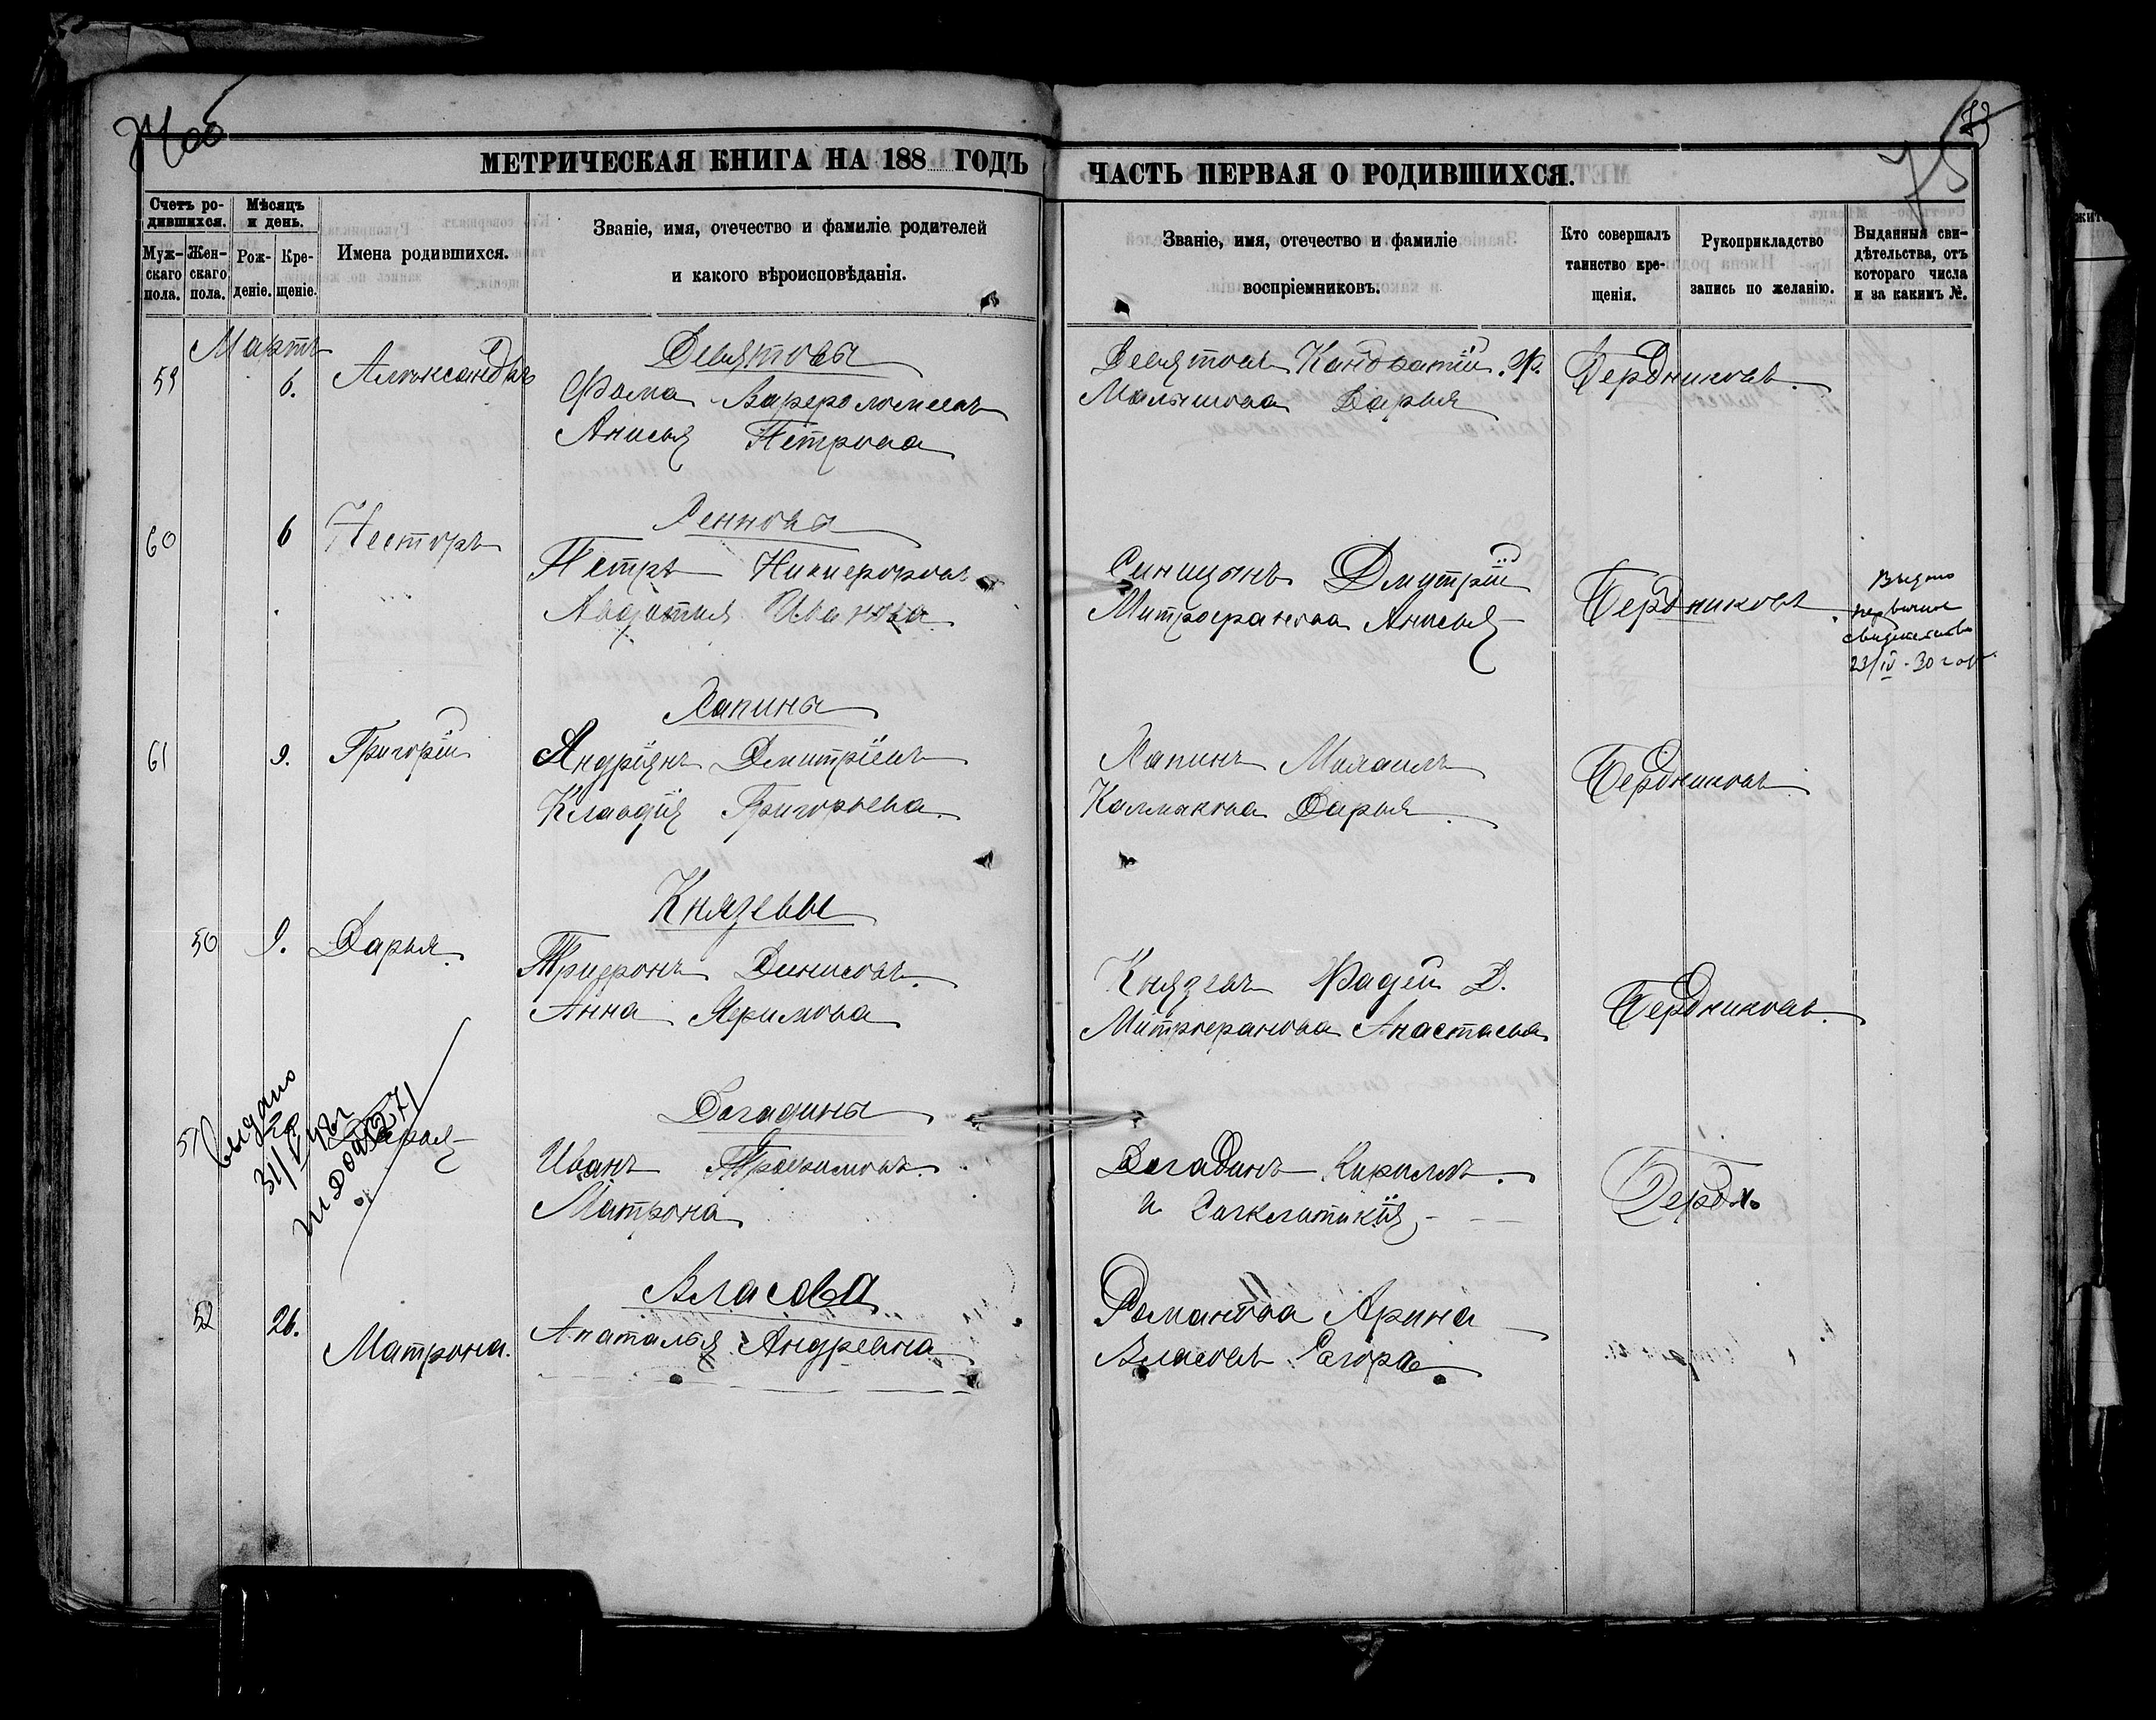 МЕТРИЧЕСКАЯ КНИГА НА 188 ГОДЪ
ЧАСТЬ ПЕРВАЯ О РОДИВШИХСЯ.
75
Счетъ ро-
дившихся.
Муж-
скаго
пола.
Жен-
скаго
пола.
Мѣсяцъ
и день.
Рож-
деніе.
Кре-
щеніе.
Имена родившихся.
Званіе, имя, отечество и фамиліе родителей
и какого вѣроисповѣданія.
Званіе, имя, отечество и фамиліе
воспріемниковъ.
Кто совершалъ
таинство кре-
щенія.
Рукоприкладство
запись по желанію.
Выданныя сви-
дѣтельства, отъ
котораго числа
и за какимъ №.
Мартъ
59 6. Александръ
Девятовы
Фома Варфоломеевъ
Анисья Петрова
Девятовъ Кандратій. Ф.
Малышова Дарья
Бердниковъ.
60 6 Несторъ
Петръ Никифоровъ
Авдотья Иванова
Синицынъ Дмитрій
Митрофанова Анисья
Бердниковъ
Выдано
первичное
свидетельство
23/IV-30 год
61 9. Григорій
Хапины
Андріянъ Дмитріевъ
Клавдія Григорьева.
Хапинъ Михаилъ
Калмыкова Дарья.
Бердниковъ
50 9. Дарья.
Князевы
Трифонъ Денисовъ.
Анна Яфимова
Князевъ Фадей Д.
Митрофанова Анастасья
Бердниковъ.
51 Дарья
Выдано
Догадины
Иванъ Трофимовъ.
Матрона
Догадинъ Кирилъ.
и
Берд
52 26. Матрона.
Власова
Анаталья Андреевна
Романова Арина
Власовъ Егоръ